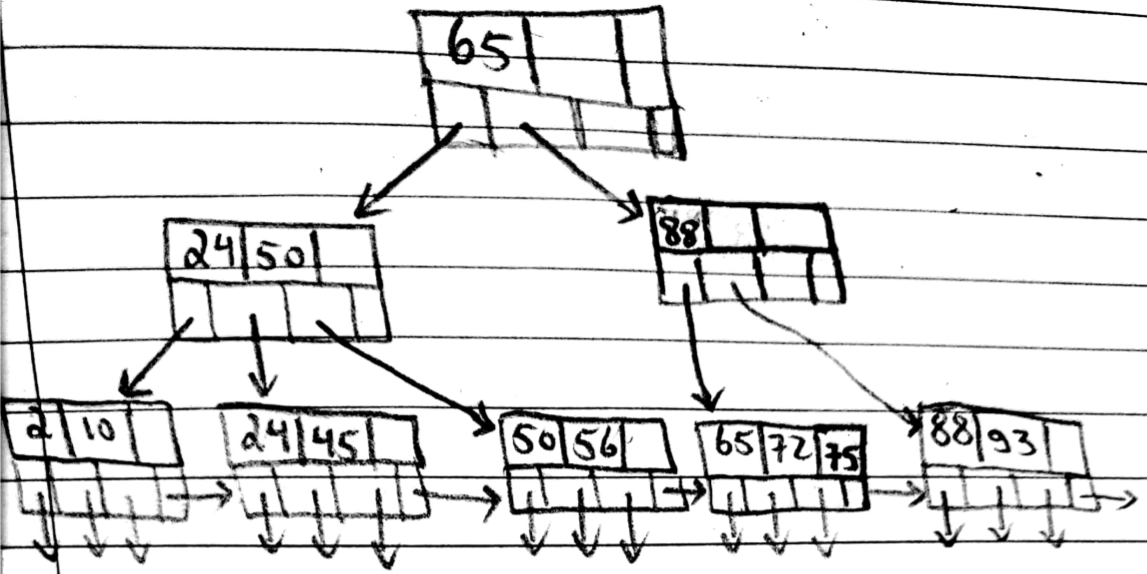 65
24 50
88
2 10
24 45
50 56
65 72 75
88 93